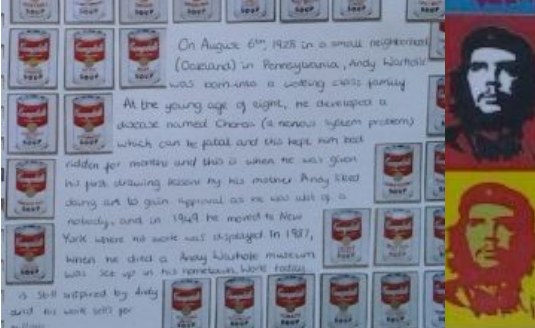 On August 6th, 1928 in a small neighborhood
(Oakland) in Pennsylvania, Andy Warhole
was born into a working class family
At the young age of eight, he developed a
disease named Chorea (a nervous system problem)
which can be fatal and this kept him bed
ridden for months and this is when he was given
his first drawing lessons by his mother Andy liked
doing art to gain approval as he was abit of a
nobody, and in 1949 he moved to New
York where his work was displayed. In 1987,
when he died a Andy Warhole museum
was set up in his hometown. Work today
is still inspired by Andy
and his work sells for
Campbell's
SOUP